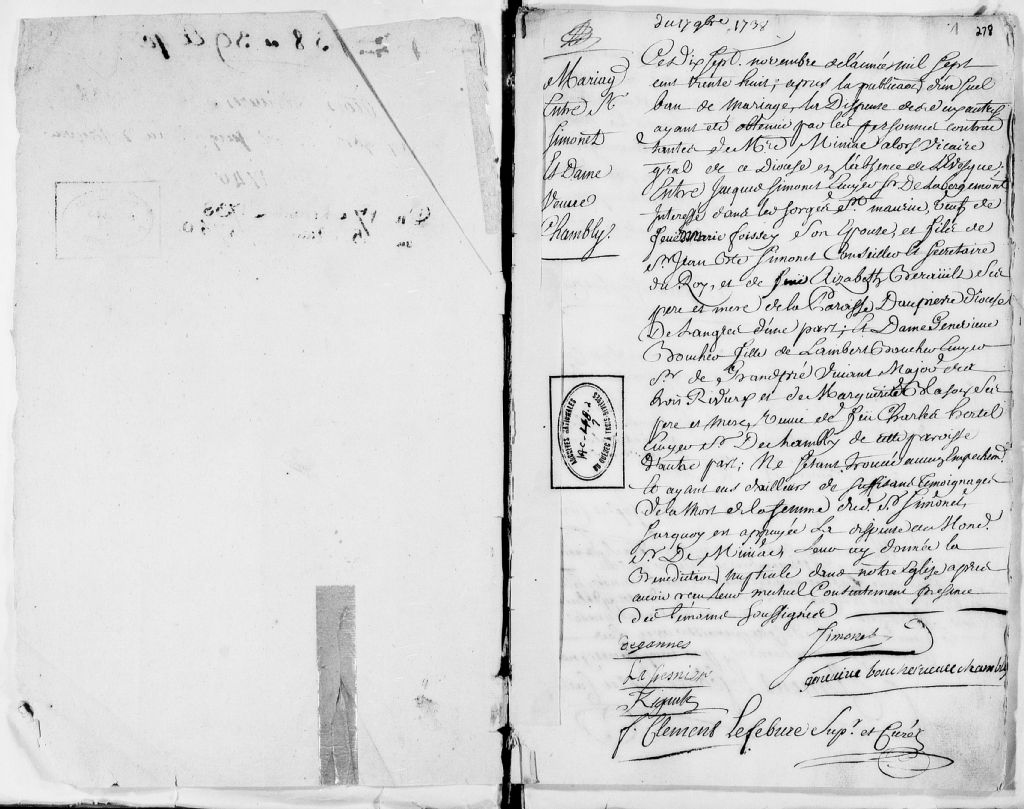 38 a 39 et 40
du 17 9bre 1738
1 278
Mariag
Entre Sr
Simonet
Et Dame
Veuve
Chambly.
Ce dix sept novembre de l'année mil sept
cent trente huit; après la publication d'un seul
ban de mariage, la Dispense des deux autres
ayant eté obtenue par les personnes contrac
tantes de Mre Miniac alors vicaire
gral de ce Diocese en l'absence de L'Evesque
Entre Jacques Simonet Ecuyer Sr De Labergemont
Interessé dans les forges St maurice veuf de
feue Marie foissey son Epouse, et fils de
Sr Jean Bte Simonet Conseiller et Secretaire
du Roy, et de feue Elizabeth Berault ses
pere et mere de la Paroisse Dampierre Diocese
De Langres d'une part; Et Dame Genevieve
Boucher fille de Lambert Boucher Ecuyer
Sr de Grandpré vivant Major des
trois Rivieres et de Marguerite ses
pere et mere, veuve de feu Charles hertel
Ecuyer Sr De chambly de cette paroisse
d'autre part; Ne s'etant trouvé aucun Empechemt
Et ayant eus d'ailleurs de suffisans temoignages
de la mort de la femme dud. Sr Simonet
surquoy est appuyée La dispense
Sr De Miniac Leur ay donnée la
Benediction nuptiale dans notre Eglise apres
avoir receu leur mutuel Consentement presence
des témoins soussignés
Simonet
genevieve boucher veuve chambly
Rigault
f. Clement Lefebvre Supr. et Curé
ARCHIVES NATIONALES
DU QUEBEC A TROIS-RIVIERES